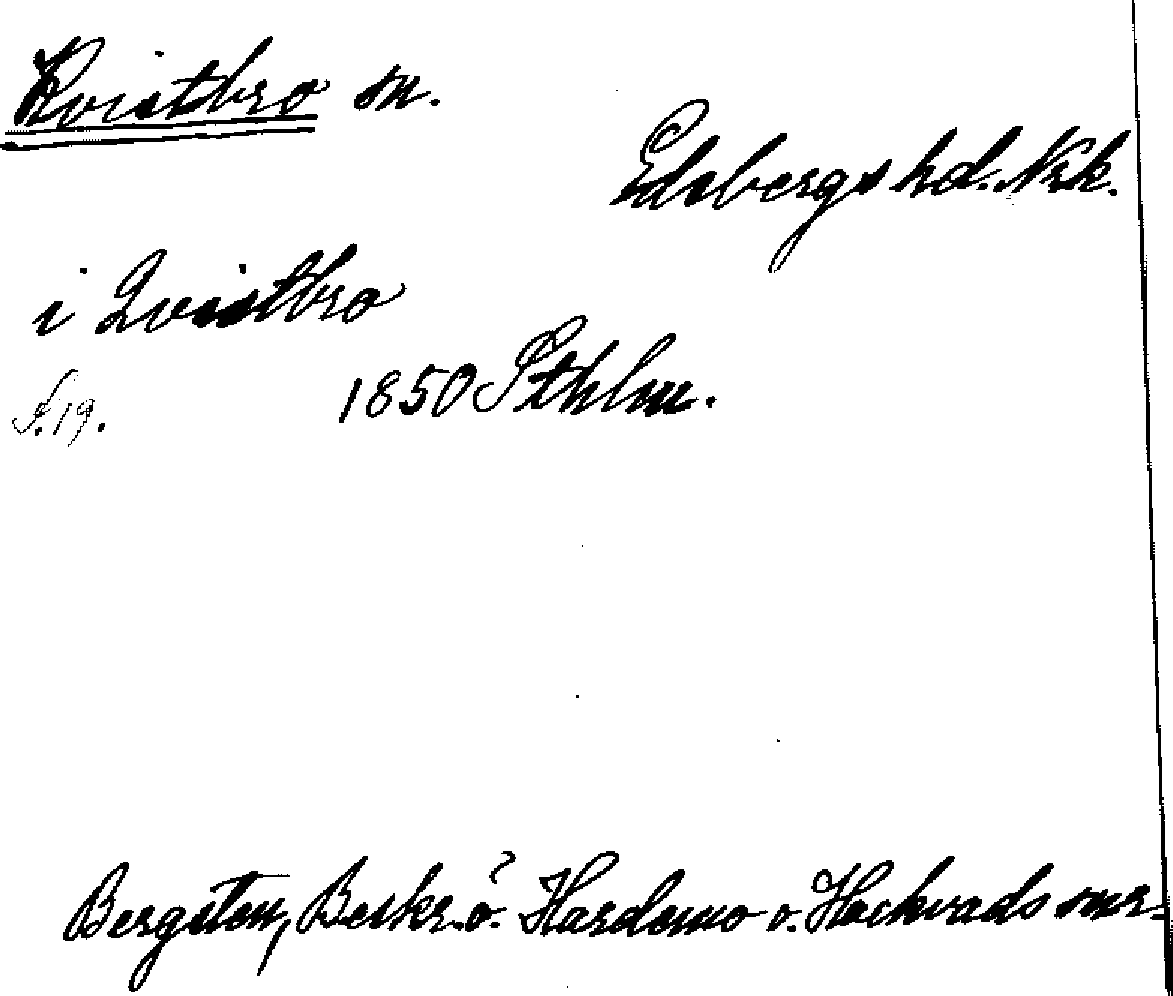 Kvistbro sn.
Edsbergs hd. Nrk.
i Qvistbro
S. 19. 1850 Sthlm.
Bergsten, Beskr. ö. Hardemo o. Hackvads snr.